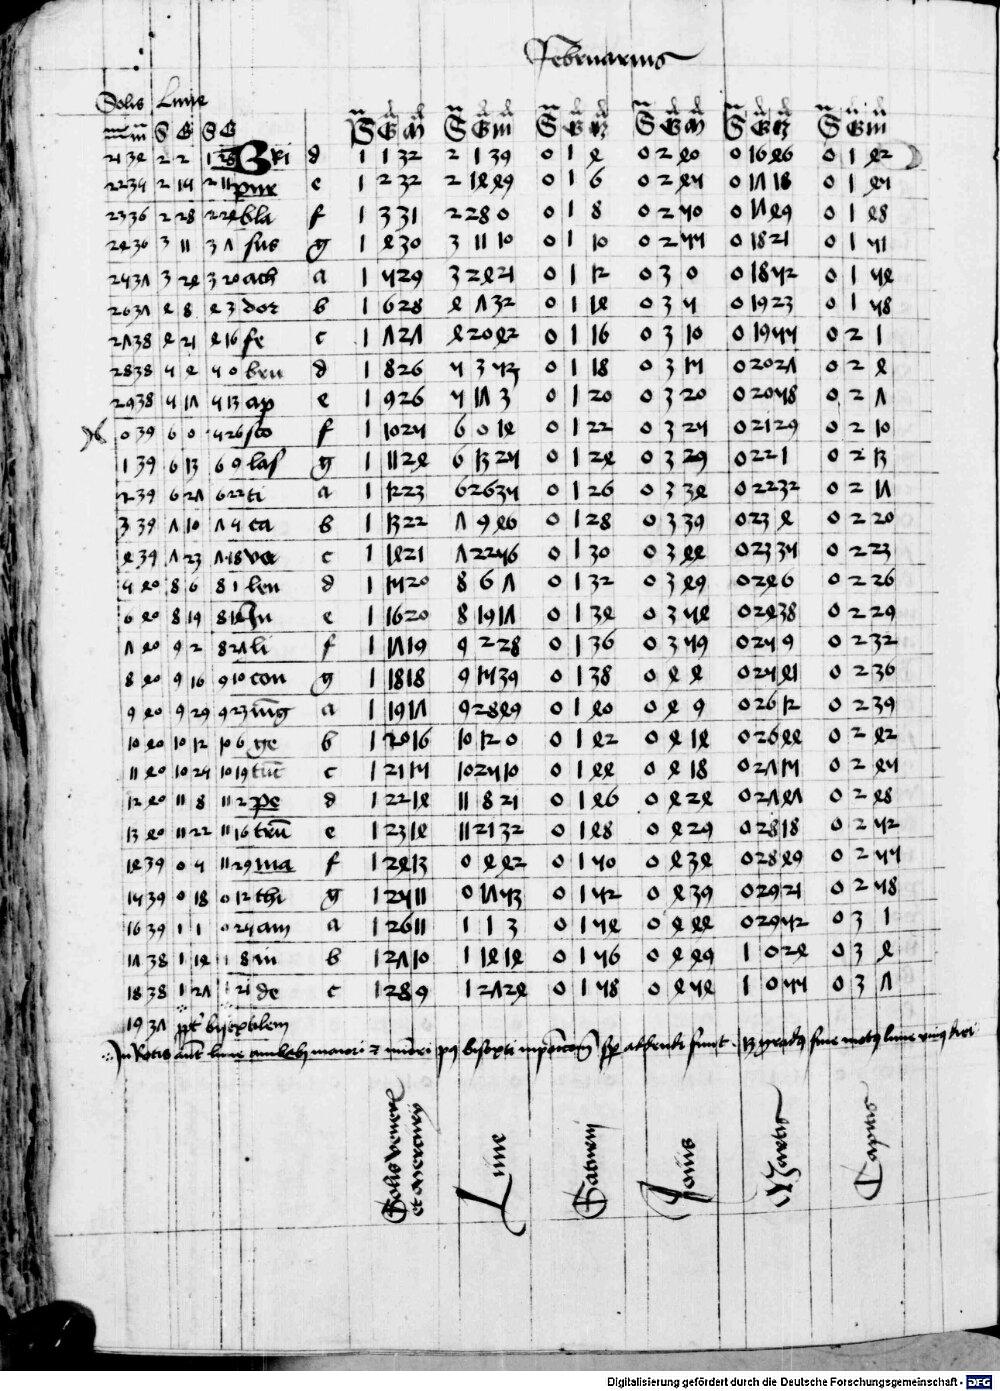 Februarius
Solis Lune
m m S G S G S G m S G m S G m S G m S G m S G m
21 34 2 2 1 28 Bri d 1 1 32 2 1 39 0 1 4 0 2 40 0 16 46 0 1 42
22 34 2 15 2 11 pur e 1 2 32 2 14 49 0 1 6 0 2 45 0 17 18 0 1 45
23 36 2 28 2 24 bla f 1 3 31 2 28 0 0 1 8 0 2 50 0 17 49 0 1 48
24 36 3 11 3 7 sus g 1 4 30 3 11 10 0 1 10 0 2 55 0 18 21 0 1 51
25 37 3 24 3 20 ach a 1 5 29 3 24 21 0 1 12 0 3 0 0 18 52 0 1 54
26 37 4 8 4 3 dor b 1 6 28 4 7 32 0 1 14 0 3 5 0 19 23 0 1 58
27 38 4 21 4 16 fe c 1 7 27 4 20 42 0 1 16 0 3 10 0 19 55 0 2 1
28 38 5 4 5 0 bru d 1 8 26 5 3 53 0 1 18 0 3 15 0 20 27 0 2 4
29 38 5 17 5 13 ap e 1 9 26 5 17 3 0 1 20 0 3 20 0 20 58 0 2 7
0 39 6 0 5 26 sco f 1 10 25 6 0 14 0 1 22 0 3 25 0 21 29 0 2 10
1 39 6 13 6 9 las g 1 11 24 6 13 25 0 1 24 0 3 29 0 22 1 0 2 13
2 39 6 27 6 22 ti a 1 12 23 6 26 35 0 1 26 0 3 34 0 22 32 0 2 17
3 39 7 10 7 5 ca b 1 13 22 7 9 46 0 1 28 0 3 39 0 23 4 0 2 20
4 39 7 23 7 18 va c 1 14 21 7 22 56 0 1 30 0 3 44 0 23 35 0 2 23
5 40 8 6 8 1 len d 1 15 20 8 6 7 0 1 32 0 3 49 0 24 6 0 2 26
6 40 8 19 8 14 Ju e 1 16 20 8 19 17 0 1 34 0 3 54 0 24 38 0 2 29
7 40 9 2 8 27 li f 1 17 19 9 2 28 0 1 36 0 3 59 0 25 9 0 2 32
8 40 9 16 9 10 con g 1 18 18 9 15 39 0 1 38 0 4 4 0 25 41 0 2 36
9 40 9 29 9 23 iūg a 1 19 17 9 28 49 0 1 40 0 4 9 0 26 12 0 2 39
10 40 10 12 10 6 ge b 1 20 16 10 12 0 0 1 42 0 4 14 0 26 44 0 2 42
11 40 10 25 10 19 tuc c 1 21 15 10 25 10 0 1 44 0 4 18 0 27 15 0 2 45
12 40 11 8 11 2 pe d 1 22 14 11 8 21 0 1 46 0 4 24 0 27 47 0 2 48
13 40 11 22 11 16 trū e 1 23 14 11 21 32 0 1 48 0 4 29 0 28 18 0 2 52
14 39 0 5 11 29 ma f 1 24 13 0 4 42 0 1 50 0 4 34 0 28 49 0 2 55
15 39 0 18 0 12 thi g 1 25 11 0 17 53 0 1 52 0 4 39 0 29 21 0 2 58
16 39 1 1 0 25 am a 1 26 11 1 1 3 0 1 54 0 4 44 0 29 52 0 3 1
17 38 1 14 1 8 in b 1 27 10 1 14 14 0 1 56 0 4 49 1 0 24 0 3 4
18 38 1 27 1 21 de c 1 28 9 1 27 24 0 1 58 0 4 54 1 0 55 0 3 7
19 37 ppt' bisextilem
In Rotis aut lune maiori minori bisexti sunt 13 gradus sine motus lune unius diei
Solis veneris et mercurij
Lune
Saturnj
Jouis
Martis
Capitis
Digitalisierung gefördert durch die Deutsche Forschungsgemeinschaft - DFG